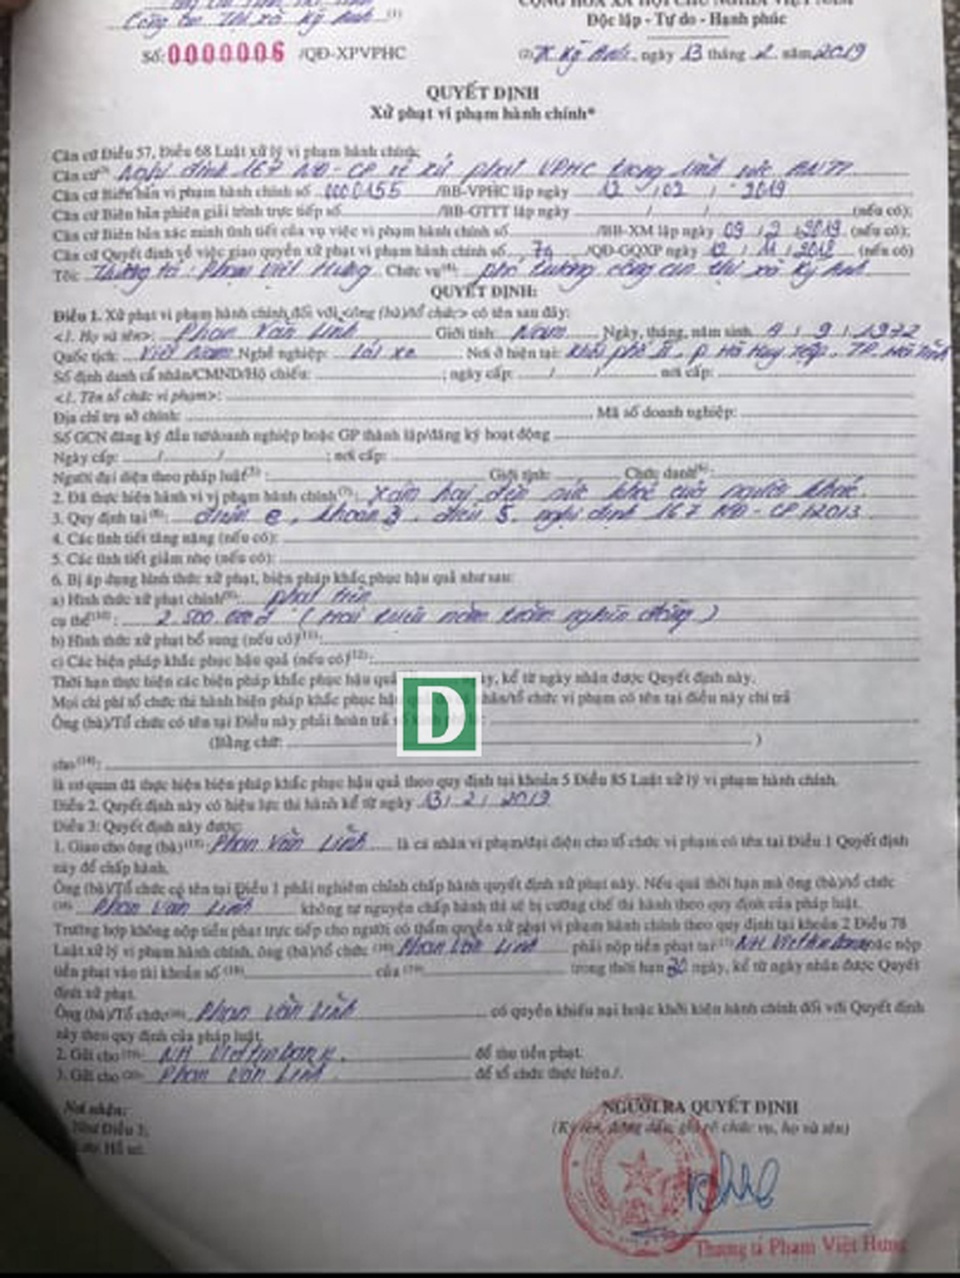 Công an Thị xã Kỳ Anh (1)
CỘNG HÒA XÃ HỘI CHỦ NGHĨA VIỆT NAM
Độc lập - Tự do - Hạnh phúc
Số: 0000006 /QĐ-XPVPHC
(2) TX Kỳ Anh, ngày 13 tháng 2 năm 2019
QUYẾT ĐỊNH
Xử phạt vi phạm hành chính*
Căn cứ Điều 57, Điều 68 Luật xử lý vi phạm hành chính;
Căn cứ Nghị định 167 NĐ-CP về xử phạt VPHC trong lĩnh vực ANTT
Căn cứ Biên bản vi phạm hành chính số 0000155 /BB-VPHC lập ngày 12 / 02 / 2019
Căn cứ Biên bản phiên giải trình trực tiếp số /BB-GTTT lập ngày / / (nếu có);
Căn cứ Biên bản xác minh tình tiết của vụ việc vi phạm hành chính số /BB-XM lập ngày 09 / 2 / 2019 (nếu có);
Căn cứ Quyết định về việc giao quyền xử phạt vi phạm hành chính số 76 /QĐ-GQXP ngày 12 / 11 / 2018 (nếu có)
Tôi: Thượng tá: Phạm Việt Hưng Chức vụ: phó trưởng công an thị xã Kỳ Anh
QUYẾT ĐỊNH:
Điều 1. Xử phạt vi phạm hành chính đối với <ông (bà)/tổ chức> có tên sau đây:
<1. Họ và tên>: Phan Văn Linh Giới tính: Nam Ngày, tháng, năm sinh 9 / 1972
Quốc tịch: Việt Nam Nghề nghiệp: Lái xe Nơi ở hiện tại: Khối phố II, P Hà Huy Tập, TP Hà Tĩnh
Số định danh cá nhân/CMND/Hộ chiếu: ; ngày cấp: / / nơi cấp:
<1. Tên tổ chức vi phạm>:
Địa chỉ trụ sở chính: Mã số doanh nghiệp:
Số GCN đăng ký đầu tư/doanh nghiệp hoặc GP thành lập/đăng ký hoạt động
Ngày cấp: / / ; nơi cấp:
Người đại diện theo pháp luật(5): Giới tính: Chức danh(6):
2. Đã thực hiện hành vi vi phạm hành chính(7): Xâm hại đến sức khỏe của người khác
3. Quy định tại (8): điểm e, khoản 3, điều 5, nghị định 167 NĐ-CP/2013
4. Các tình tiết tăng nặng (nếu có):
5. Các tình tiết giảm nhẹ (nếu có):
6. Bị áp dụng hình thức xử phạt, biện pháp khắc phục hậu quả như sau:
a) Hình thức xử phạt chính(9): phạt tiền
cụ thể(10): 2.500.000đ (Hai triệu năm trăm nghìn đồng)
b) Hình thức xử phạt bổ sung (nếu có)(11):
c) Các biện pháp khắc phục hậu quả (nếu có)(12):
Thời hạn thực hiện các biện pháp khắc phục hậu quả ngày, kể từ ngày nhận được Quyết định này.
D
Mọi chi phí tổ chức thi hành biện pháp khắc phục hậu quả nhân/tổ chức vi phạm có tên tại điều này chi trả
Ông (bà)/Tổ chức có tên tại Điều này phải hoàn trả số
(Bằng chữ: )
cho(14):
là cơ quan đã thực hiện biện pháp khắc phục hậu quả theo quy định tại khoản 5 Điều 85 Luật xử lý vi phạm hành chính.
Điều 2. Quyết định này có hiệu lực thi hành kể từ ngày 13 / 2 / 2019
Điều 3: Quyết định này được:
1. Giao cho ông (bà)(15): Phan Văn Linh là cá nhân vi phạm/đại diện cho tổ chức vi phạm có tên tại Điều 1 Quyết định
này để chấp hành.
Ông (bà)/Tổ chức có tên tại Điều 1 phải nghiêm chỉnh chấp hành quyết định xử phạt này. Nếu quá thời hạn mà ông (bà)/tổ chức
Phan Văn Linh không tự nguyện chấp hành thì sẽ bị cưỡng chế thi hành theo quy định của pháp luật.
Trường hợp không nộp tiền phạt trực tiếp cho người có thẩm quyền xử phạt vi phạm hành chính theo quy định tại khoản 2 Điều 78
Luật xử lý vi phạm hành chính, ông (bà)/tổ chức Phan Văn Linh phải nộp tiền phạt tại NH Viettinbank hoặc nộp
tiền phạt vào tài khoản số của trong thời hạn ngày, kể từ ngày nhận được Quyết
định xử phạt.
Ông (bà)/Tổ chức Phan Văn Linh có quyền khiếu nại hoặc khởi kiện hành chính đối với Quyết định
này theo quy định của pháp luật.
2. Gửi cho NH Viettinbank để thu tiền phạt.
3. Gửi cho Phan Văn Linh để tổ chức thực hiện./.
Nơi nhận:
Như Điều 3;
Lưu: Hồ sơ.
NGƯỜI RA QUYẾT ĐỊNH
(Ký tên, đóng dấu, ghi rõ chức vụ, họ và tên)
Thượng tá Phạm Việt Hưng